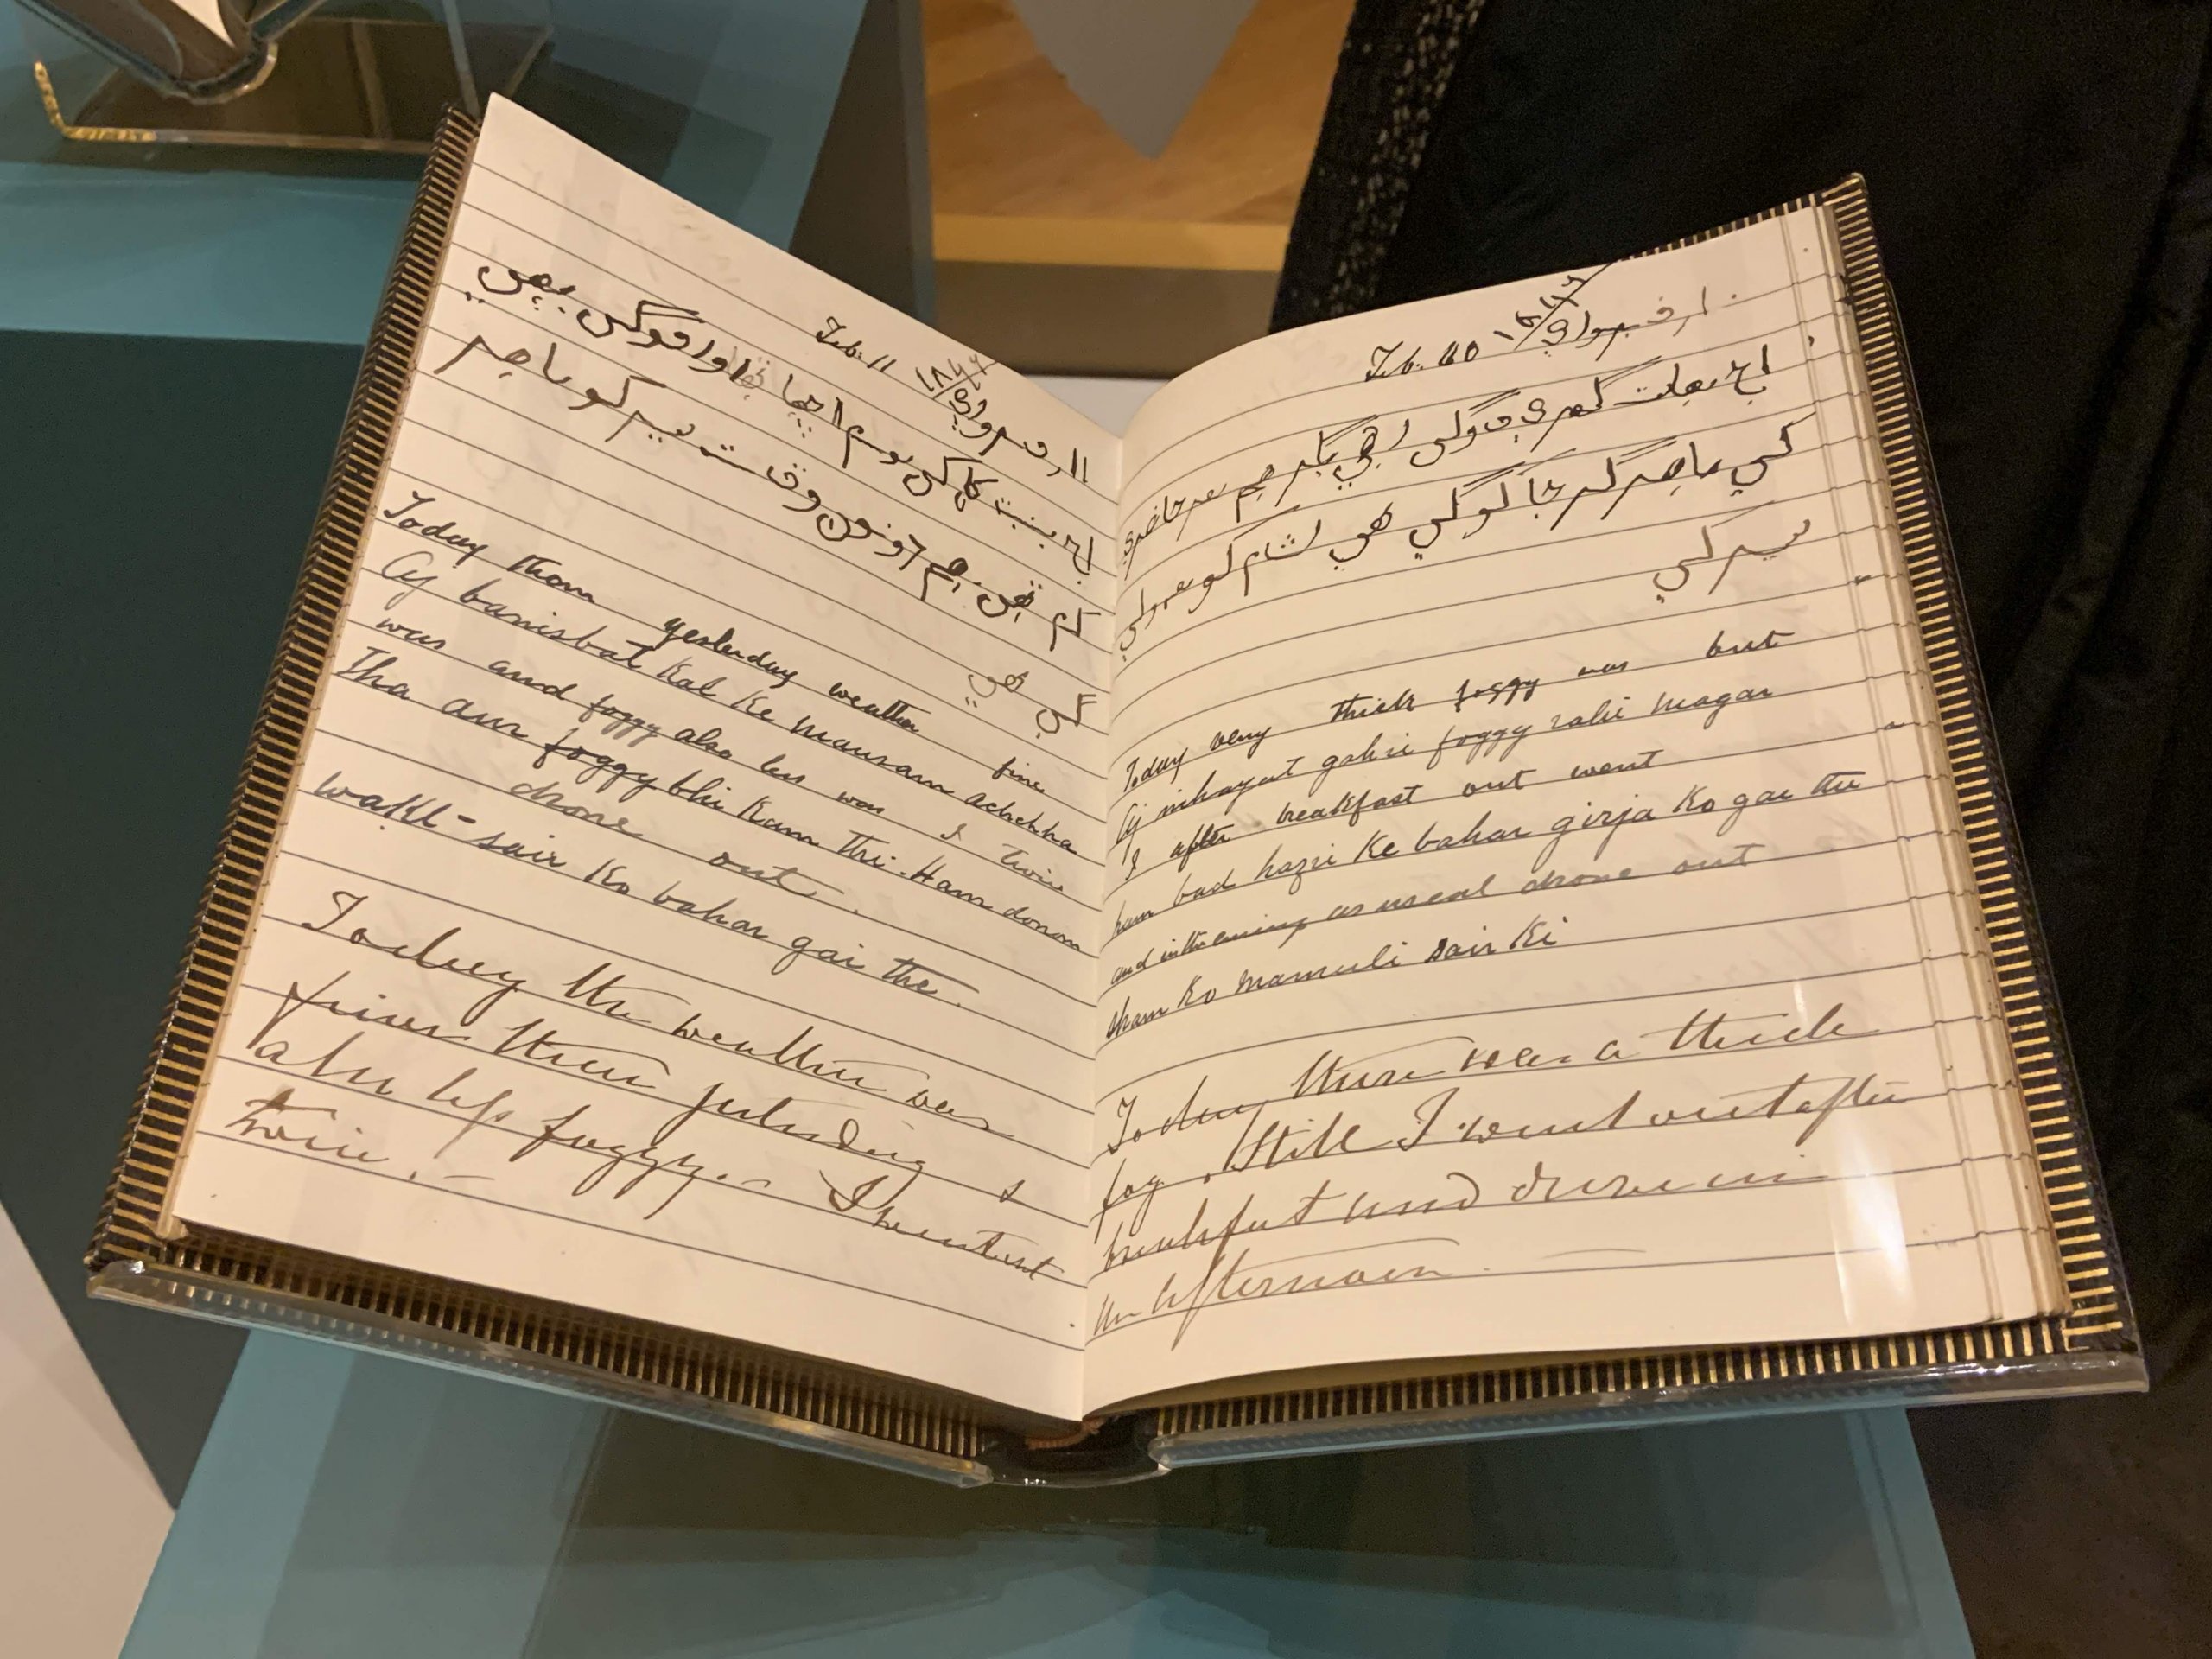 Feb. 10 ۱۰ر فبروری
اج نہایت گہری فوگی رہی مگر ہم بعد حاضری
کی باہر گرجا کو گئی تھی شام کو معمولی
سیر کی
Today very thick foggy was but
Aj nihayat gahri foggy rahi magar
I after breakfast out went
ham bad hazri ke bahar girja ko gae the
and in the evening as useal drove out
sham ko mamuli sair ki
Today there was a thick
fog. Still I went out after
breakfast and drove in
the afternoon. —
Feb. 11 ۱۱ر فبروری
اج بنسبت کل کی موسم اچھا تھا اور فوگی بھی
کم تھی ہم دونوں وقت سیر کو باہر
گئی تھی
Today than yesterday weather fine
Aj banisbat Kal Ke mausam achchha
was and foggy also less was I twice
tha aur foggy bhi Kam thi. Ham donon
drove out.
wakt-sair Ko bahar gai the.
Today the weather was
finer than yesterday &
also less foggy. – I went out
twice. –